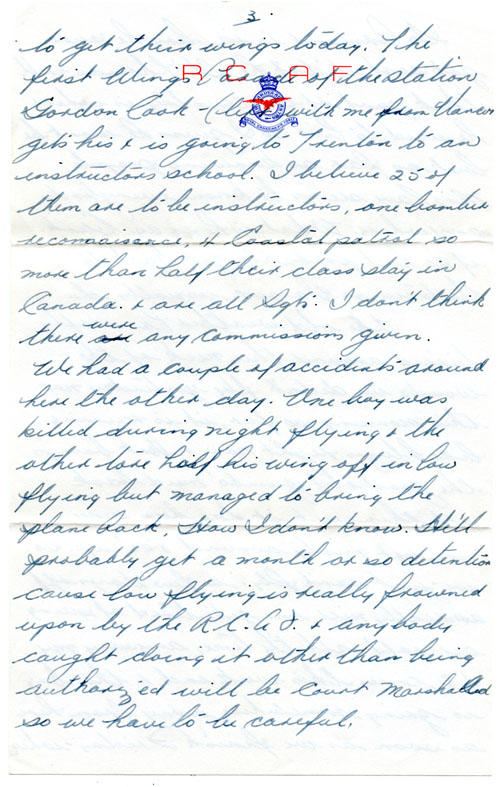 3.
to get their wings today. The
R C A F
first Wings Parade of the station
Gordon Cook - with me from Vancr
gets his & is going to Trenton to an
instructors school. I believe 25 of
them are to be instructors, one bomber
reconnaisance, 4 Coastal patrol so
more than half their class stay in
Canada. & are all Sgts. I don't think
there were any commissions given.
We had a couple of accidents around
here the other day. One boy was
killed during night flying & the
other tore half his wing off in low
flying but managed to bring the
plane back, How I don't know. He'll
probably get a month or so detention
cause low flying is really frowned
upon by the R.C.A.F. & anybody
caught doing it other than being
authorized will be court marshalled
so we have to be careful.